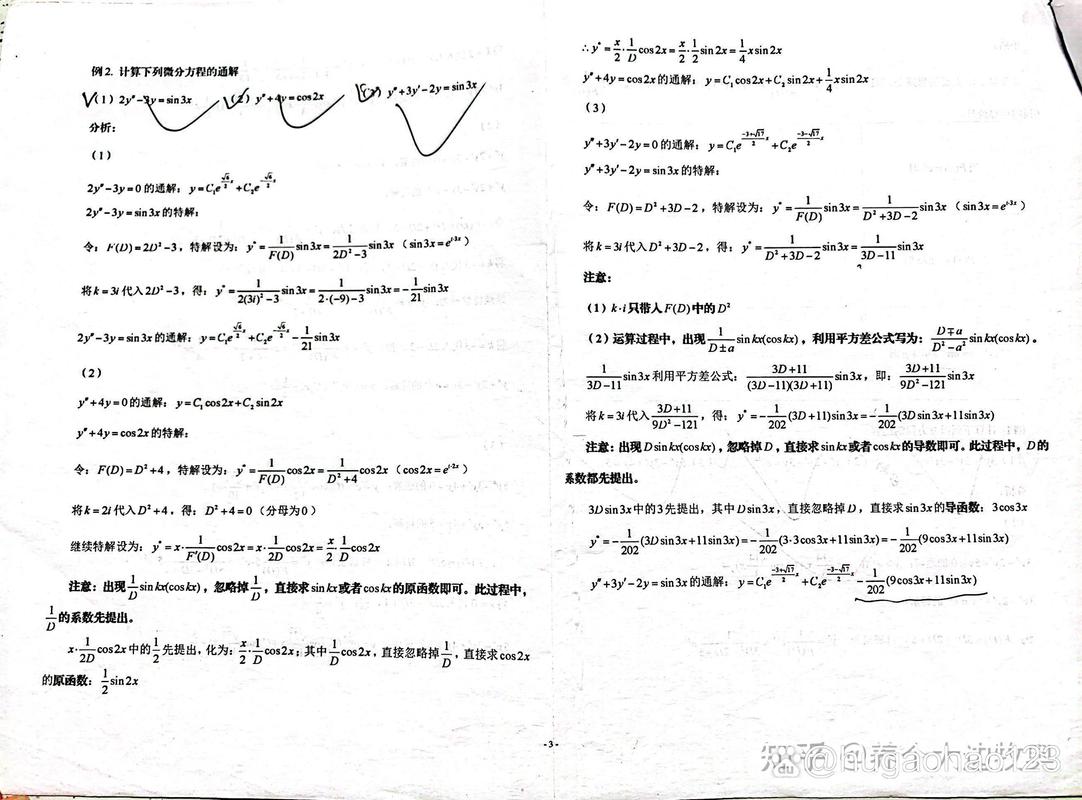 例2. 计算下列微分方程的通解
(1) 2y″−3y=sin3x (2) y″+4y=cos2x (3) y″+3y′−2y=sin3x
分析：
(1)
2y″−3y=0的通解：y=C₁e^(√6/2 x)+C₂e^(−√6/2 x)
2y″−3y=sin3x的特解：
令：F(D)=2D²−3，特解设为：y*=1/F(D) sin3x=1/(2D²−3) sin3x（sin3x=e^(i·3x)）
将k=3i代入2D²−3，得：y*=1/(2(3i)²−3) sin3x=1/(2·(−9)−3) sin3x=−1/21 sin3x
2y″−3y=sin3x的通解：y=C₁e^(√6/2 x)+C₂e^(−√6/2 x)−1/21 sin3x
(2)
y″+4y=0的通解：y=C₁cos2x+C₂sin2x
y″+4y=cos2x的特解：
令：F(D)=D²+4，特解设为：y*=1/F(D) cos2x=1/(D²+4) cos2x（cos2x=e^(i·2x)）
将k=2i代入D²+4，得：D²+4=0（分母为0）
继续特解设为：y*=x·1/F′(D) cos2x=x·1/2D cos2x=x/2·1/D cos2x
注意：出现1/D sinkx(coskx)，忽略掉1/D，直接求sinkx或者coskx的原函数即可。此过程中，
1/D的系数先提出。
x·1/2D cos2x中的1/2先提出，化为：x/2·1/D cos2x；其中1/D cos2x，直接忽略掉1/D，直接求cos2x
的原函数：1/2 sin2x
∴y*=x/2·1/D cos2x=x/2·1/2 sin2x=1/4 xsin2x
y″+4y=cos2x的通解：y=C₁cos2x+C₂sin2x+1/4 xsin2x
(3)
y″+3y′−2y=0的通解：y=C₁e^((−3+√17)/2 x)+C₂e^((−3−√17)/2 x)
y″+3y′−2y=sin3x的特解：
令：F(D)=D²+3D−2，特解设为：y*=1/F(D) sin3x=1/(D²+3D−2) sin3x（sin3x=e^(i·3x)）
将k=3i代入D²+3D−2，得：y*=1/(D²+3D−2) sin3x=1/(3D−11) sin3x
注意：
(1) k·i只带入F(D)中的D²
(2) 运算过程中，出现1/(D±a) sinkx(coskx)，利用平方差公式写为：(D∓a)/(D²−a²) sinkx(coskx)。
1/(3D−11) sin3x利用平方差公式：(3D+11)/((3D−11)(3D+11)) sin3x，即：(3D+11)/(9D²−121) sin3x
将k=3i代入(3D+11)/(9D²−121)，得：y*=−1/202(3D+11)sin3x=−1/202(3Dsin3x+11sin3x)
注意：出现Dsinkx(coskx)，忽略掉D，直接求sinkx或者coskx的导数即可。此过程中，D的
系数都先提出。
3Dsin3x中的3先提出，其中Dsin3x，直接忽略掉D，直接求sin3x的导函数：3cos3x
y*=−1/202(3Dsin3x+11sin3x)=−1/202(3·3cos3x+11sin3x)=−1/202(9cos3x+11sin3x)
y″+3y′−2y=sin3x的通解：y=C₁e^((−3+√17)/2 x)+C₂e^((−3−√17)/2 x)−1/202(9cos3x+11sin3x)
-3-
知乎